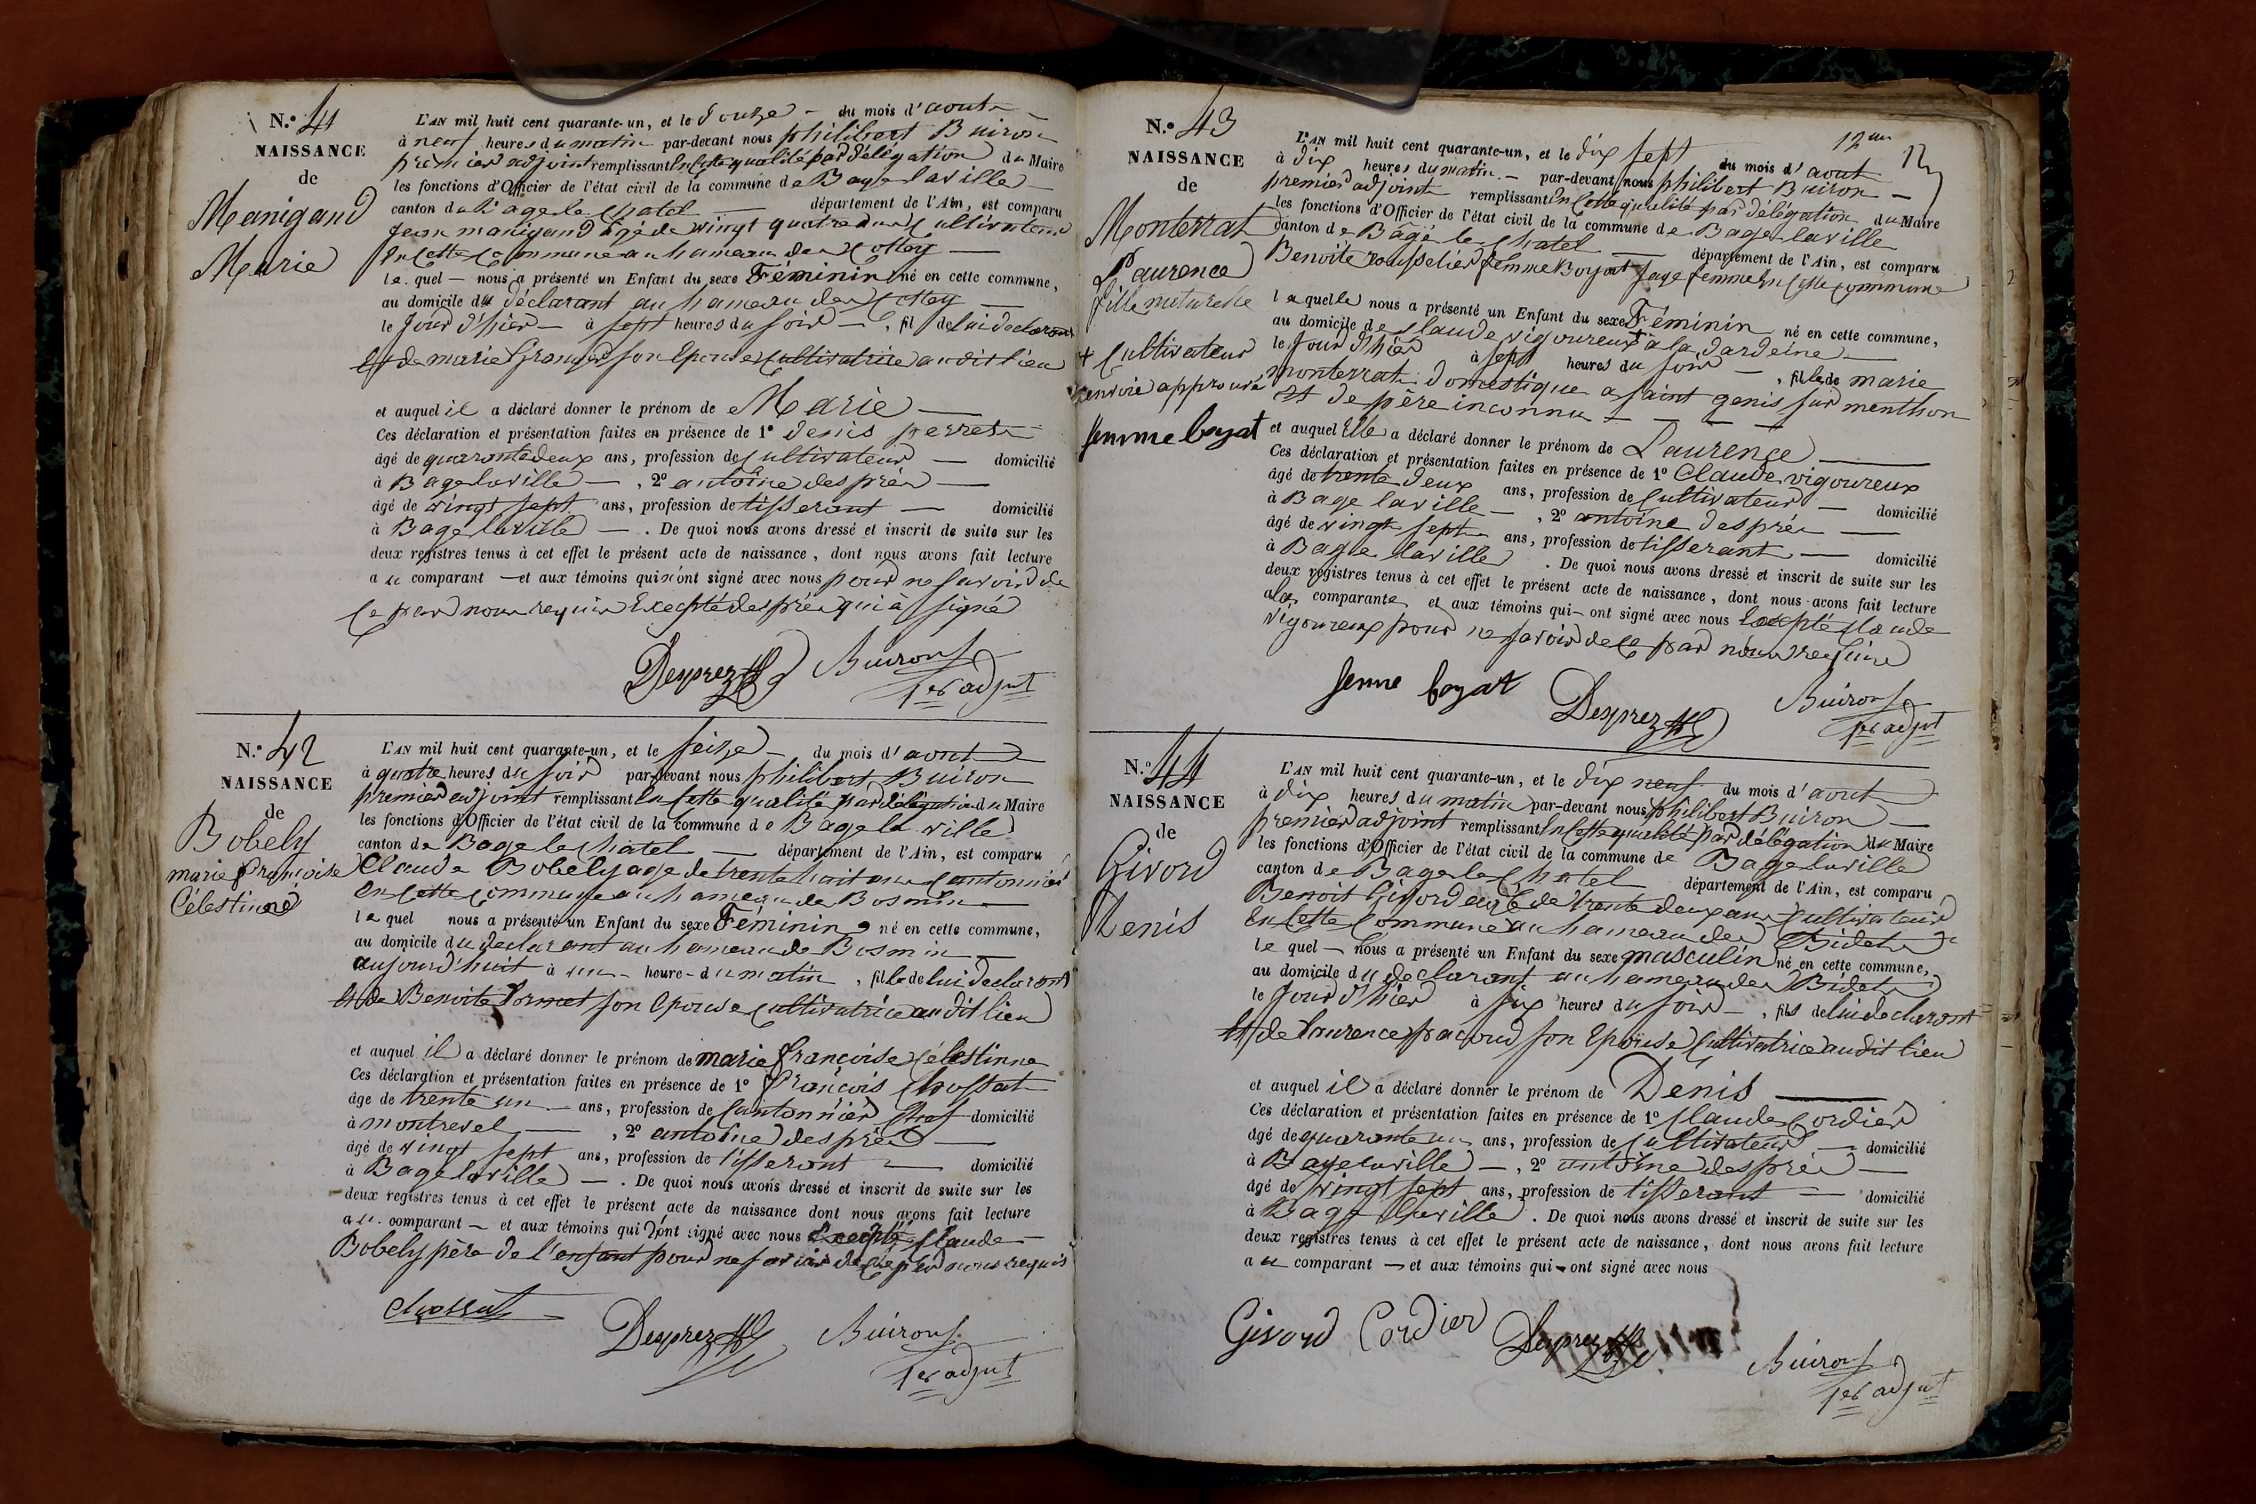 N.° 41
NAISSANCE
de
Manigand
Marie
L'AN mil huit cent quarante-un, et le douze - du mois d'aout
à neuf heures du matin par-devant nous philibert Buiron
premier adjoint remplissant En Cette qualité par délégation du Maire
les fonctions d'Officier de l'état civil de la commune de Bage laville
canton de Bage le Chatel département de l'Ain, est comparu
Jean manigand agé de vingt quatre ans Cultivateur
En Cette Commune au hameau des
le quel - nous a présenté un Enfant du sexe Féminin né en cette commune,
au domicile du déclarant au hameau des
le Jour d'hier - à sept heures du soir - , fil de lui déclarant
Et de marie son Epouse Cultivatrice audit lieu
et auquel il a déclaré donner le prénom de Marie
Ces déclaration et présentation faites en présence de 1° denis perret
âgé de quarante deux ans, profession de Cultivateur - domicilié
à Bage laville - , 2° antoine després
âgé de vingt sept ans, profession de tisserant - domicilié
à Bage laville - . De quoi nous avons dressé et inscrit de suite sur les
deux registres tenus à cet effet le présent acte de naissance, dont nous avons fait lecture
au comparant - et aux témoins qui n'ont signé avec nous pour ne savoir de
Ce par nous requis Excepté després qui à signé
Desprez Buiron
1er adjnt
N.° 42
NAISSANCE
de
Bobely
marie françoise
Célestinne
L'AN mil huit cent quarante-un, et le seize - du mois d'aout
à quatre heures du soir par-devant nous philibert Buiron
premier adjoint remplissant En Cette qualité par délégation du Maire
les fonctions d'Officier de l'état civil de la commune de Bage la ville
canton de Bage le Chatel département de l'Ain, est comparu
Claude Bobely age de trente huit ans Cantonnier
En Cette Commune au hameau de Bosmin
le quel nous a présenté un Enfant du sexe Féminin, né en cette commune,
au domicile du declarant au hameau de Bosmin
aujourd'huit à un - heure - du matin , fille de lui declarant
Et de Benoite son Epouse Cultivatrice audit lieu
et auquel il a déclaré donner le prénom de marie françoise Célestinne
Ces déclaration et présentation faites en présence de 1° françois Chossat
âge de trente un - ans, profession de Cantonnier Chef domicilié
à montrevel , 2° antoine després
âgé de vingt sept ans, profession de tisserant - domicilié
à Bage laville - . De quoi nous avons dressé et inscrit de suite sur les
deux registres tenus à cet effet le présent acte de naissance dont nous avons fait lecture
au comparant - et aux témoins qui ont signé avec nous Excepté Claude
Bobely père de l'enfant pour ne savoir de Ce par nous requis
Chossat Desprez Buiron
1er adjnt
12
N.° 43
NAISSANCE
de
Monterrat
Laurence
fille naturelle
+ Cultivateur
renvoie approuvé
femme boyat
L'AN mil huit cent quarante-un, et le dix sept du mois d'aout
à dix heures du matin. - par-devant nous philibert Buiron -
premier adjoint remplissant En Cette qualité par délégation du Maire
les fonctions d'Officier de l'état civil de la commune de Bage laville
canton de Bâgé le Chatel département de l'Ain, est comparu
Benoite rousselier femme Boyat sage femme En Cette commune
laquelle nous a présenté un Enfant du sexe Féminin né en cette commune,
au domicile de Claude vigoureux + a la dardeine
le Jour d'hier à sept heures du soir - , fille de marie
monterrat domestique a saint genis sur menthon
et de père inconnu
et auquel Elle a déclaré donner le prénom de Laurence
Ces déclaration et présentation faites en présence de 1° Claude vigoureux
âgé de trente deux ans, profession de Cultivateur - domicilié
à Bage laville - , 2° antoine després
âgé de vingt sept ans, profession de tisserant - domicilié
à Bage laville . De quoi nous avons dressé et inscrit de suite sur les
deux registres tenus à cet effet le présent acte de naissance, dont nous avons fait lecture
a la comparante et aux témoins qui - ont signé avec nous Excepté Claude
vigoureux pour ne savoir de Ce par nous requis
femme boyat Desprez Buiron
1er adjnt
N.° 44
NAISSANCE
de
Givord
Denis
L'AN mil huit cent quarante-un, et le dix neuf du mois d'aout
à dix heures du matin par-devant nous philibert Buiron -
premier adjoint remplissant En Cette qualité par délégation du Maire
les fonctions d'Officier de l'état civil de la commune de Bage laville
canton de Bage le Chatel département de l'Ain, est comparu
Benoit Givord agé de trente deux ans Cultivateur
En Cette Commune au hameau des Bidets
le quel - nous a présenté un Enfant du sexe masculin né en cette commune,
au domicile du declarant au hameau des Bidets
le Jour d'hier à six heures du soir - , fils de lui declarant
Et de Laurence pacoud son Epouse Cultivatrice audit lieu
et auquel il a déclaré donner le prénom de Denis
Ces déclaration et présentation faites en présence de 1° Claude Cordier
âgé de quarante un ans, profession de Cultivateur - domicilié
à Bage laville - , 2° antoine després -
âgé de vingt sept ans, profession de tisserant - domicilié
à Bage laville . De quoi nous avons dressé et inscrit de suite sur les
deux registres tenus à cet effet le présent acte de naissance, dont nous avons fait lecture
au comparant - et aux témoins qui - ont signé avec nous
Givord Cordier Desprez Buiron
1er adjnt